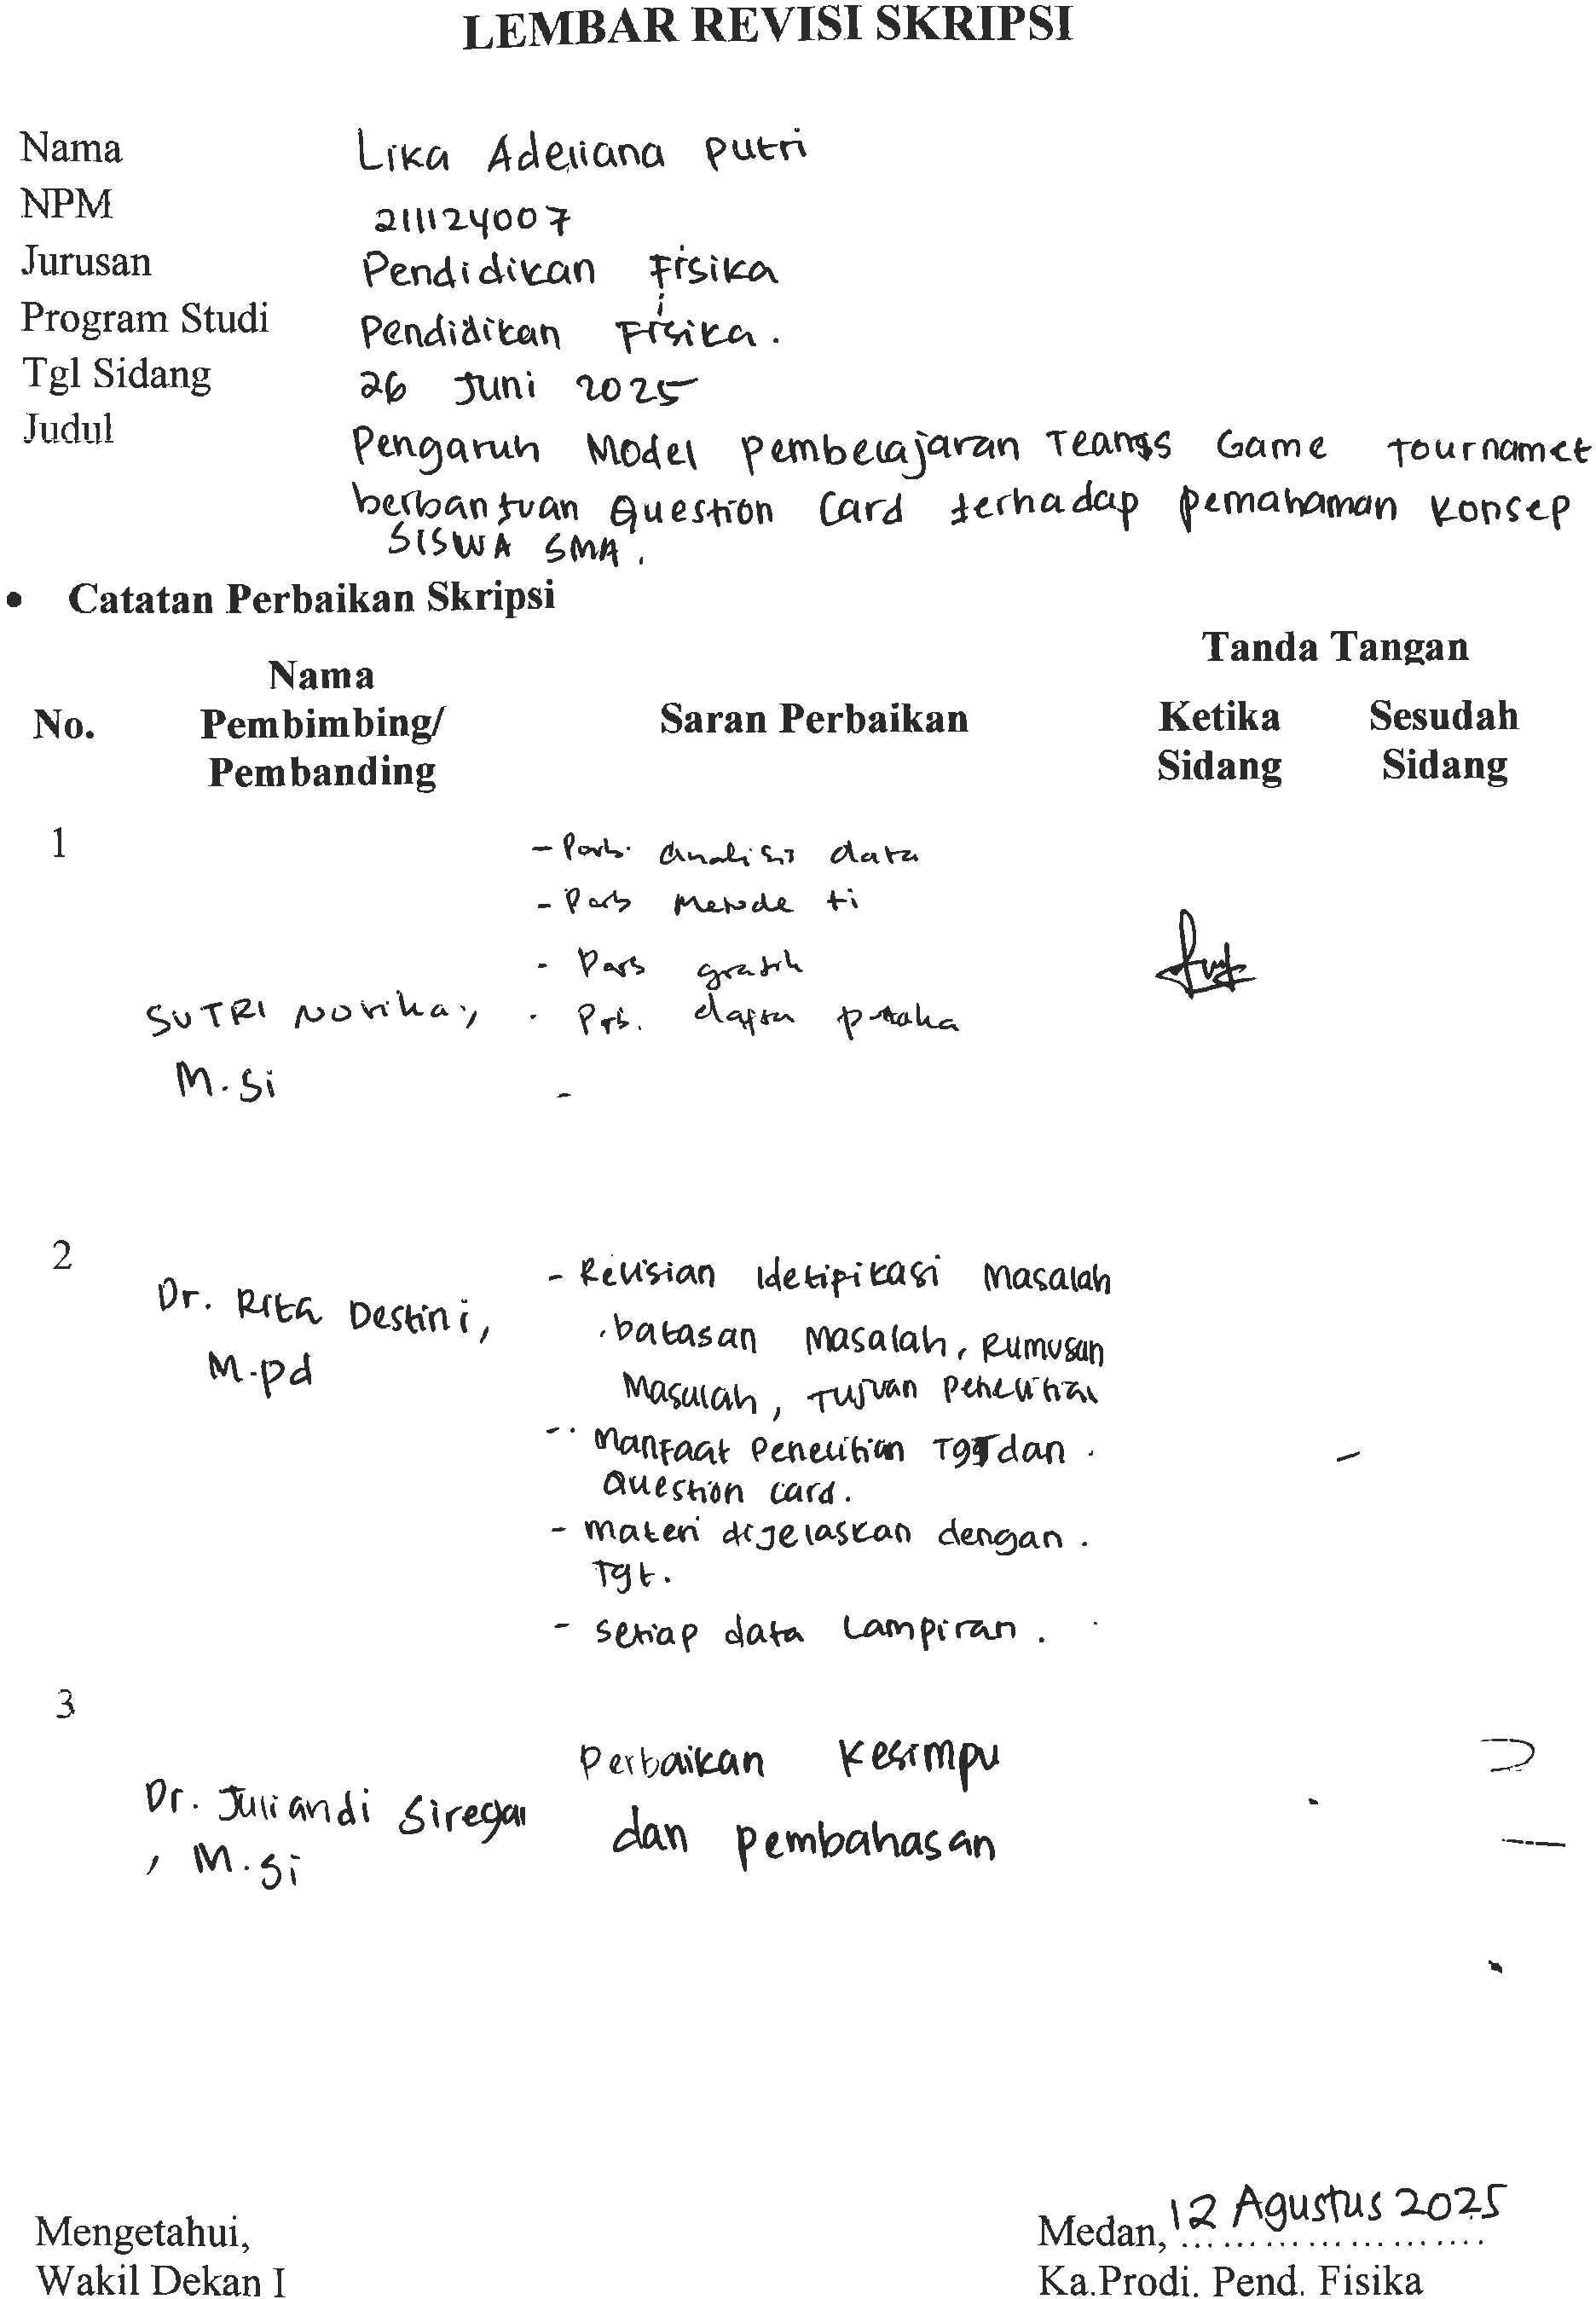 LEMBAR REVISI SKRIPSI
Nama Lika Adeliana Putri
NPM 211124007
Jurusan Pendidikan Fisika
Program Studi Pendidikan Fisika.
Tgl Sidang 26 Juni 2025
Judul Pengaruh Model Pembelajaran Teams Game Tournamet
berbantuan Question Card terhadap pemahaman konsep
SISWA SMA.
• Catatan Perbaikan Skripsi
No. Nama Pembimbing/ Pembanding Saran Perbaikan Tanda Tangan
Ketika Sidang Sesudah Sidang
1
- Analisis data
- Metode
- grafik
SUTRI Novika, - daftar pustaka
M.Si -
2
Dr. Rita Destini, - Revisian Idetipikasi Masalah
batasan Masalah, Rumusan
M.pd
Masalah, Tujuan Penelitian
- Manfaat Penelitian Tgt dan
Question card.
- materi dijelaskan dengan.
Tgt.
- setiap data Lampiran.
3
Perbaikan Kesimpu
Dr. Juliandi Siregar dan pembahasan
, M.Si
Mengetahui, Medan, 12 Agustus 2025
Wakil Dekan I Ka.Prodi. Pend. Fisika